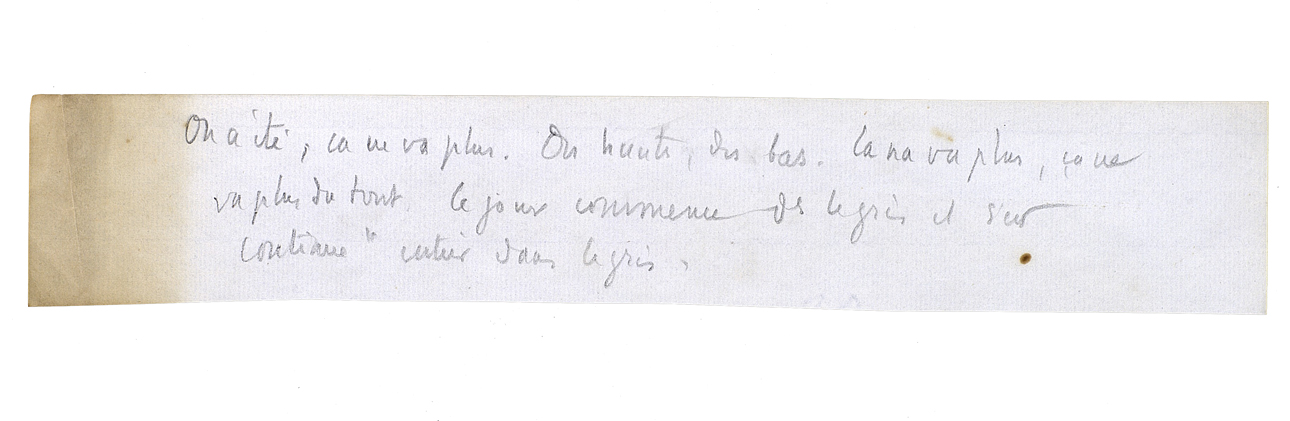 On a été, ça ne va plus. Des hauts, des bas. Ça na va plus, ça ne
va plus du tout le jour commence ds le gris il s'est
continue entier dans le gris.